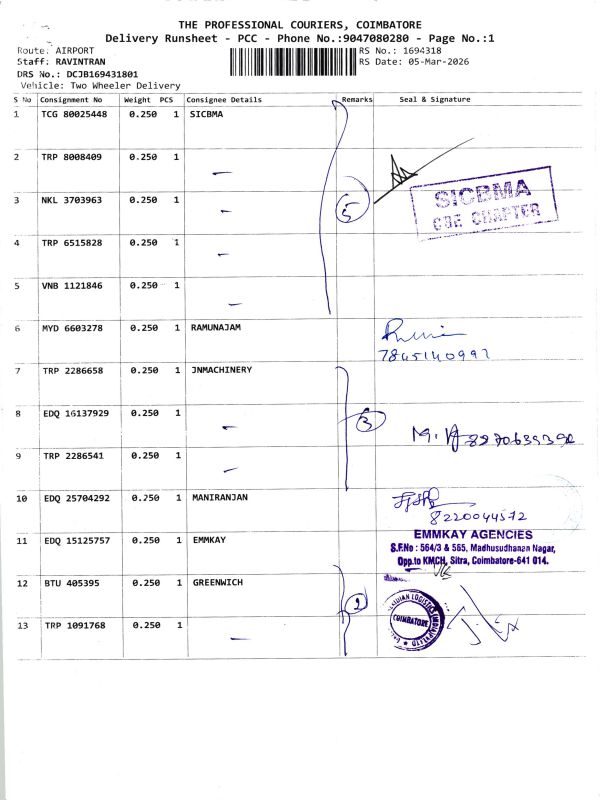 THE PROFESSIONAL COURIERS, COIMBATORE
Delivery Runsheet - PCC - Phone No.:9047080280 - Page No.:1
Route: AIRPORT
RS No.: 1694318
Staff: RAVINTRAN
RS Date: 05-Mar-2026
DRS No.: DCJB169431801
Vehicle: Two Wheeler Delivery
S No Consignment No Weight PCS Consignee Details Remarks Seal & Signature
1 TCG 80025448 0.250 1 SICBMA
2 TRP 8008409 0.250 1 —
3 NKL 3703963 0.250 1 — 5
SICBMA
CBE CHAPTER
4 TRP 6515828 0.250 1 —
5 VNB 1121846 0.250 1 —
6 MYD 6603278 0.250 1 RAMUNAJAM
7845140992
7 TRP 2286658 0.250 1 JNMACHINERY
8 EDQ 16137929 0.250 1 — 3
9 TRP 2286541 0.250 1 —
10 EDQ 25704292 0.250 1 MANIRANJAN
8220044572
11 EDQ 15125757 0.250 1 EMMKAY
EMMKAY AGENCIES
S.F.No : 564/3 & 565, Madhusudhanan Nagar,
Opp.to KMCH, Sitra, Coimbatore-641 014.
12 BTU 405395 0.250 1 GREENWICH 2
COIMBATORE
13 TRP 1091768 0.250 1 —